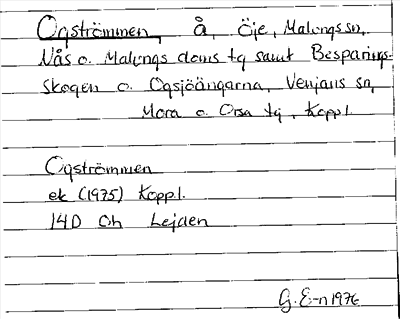 Ogströmmen, å, Öje, Malungs sn,
Nås o. Malungs doms tg samt Besparings-
skogen o. Ogsjöängarna, Venjans sn,
Mora o. Orsa tg, Koppl.
Ogströmmen
ek (1975) Koppl.
14D Ch Lejden
G. E-n 1976